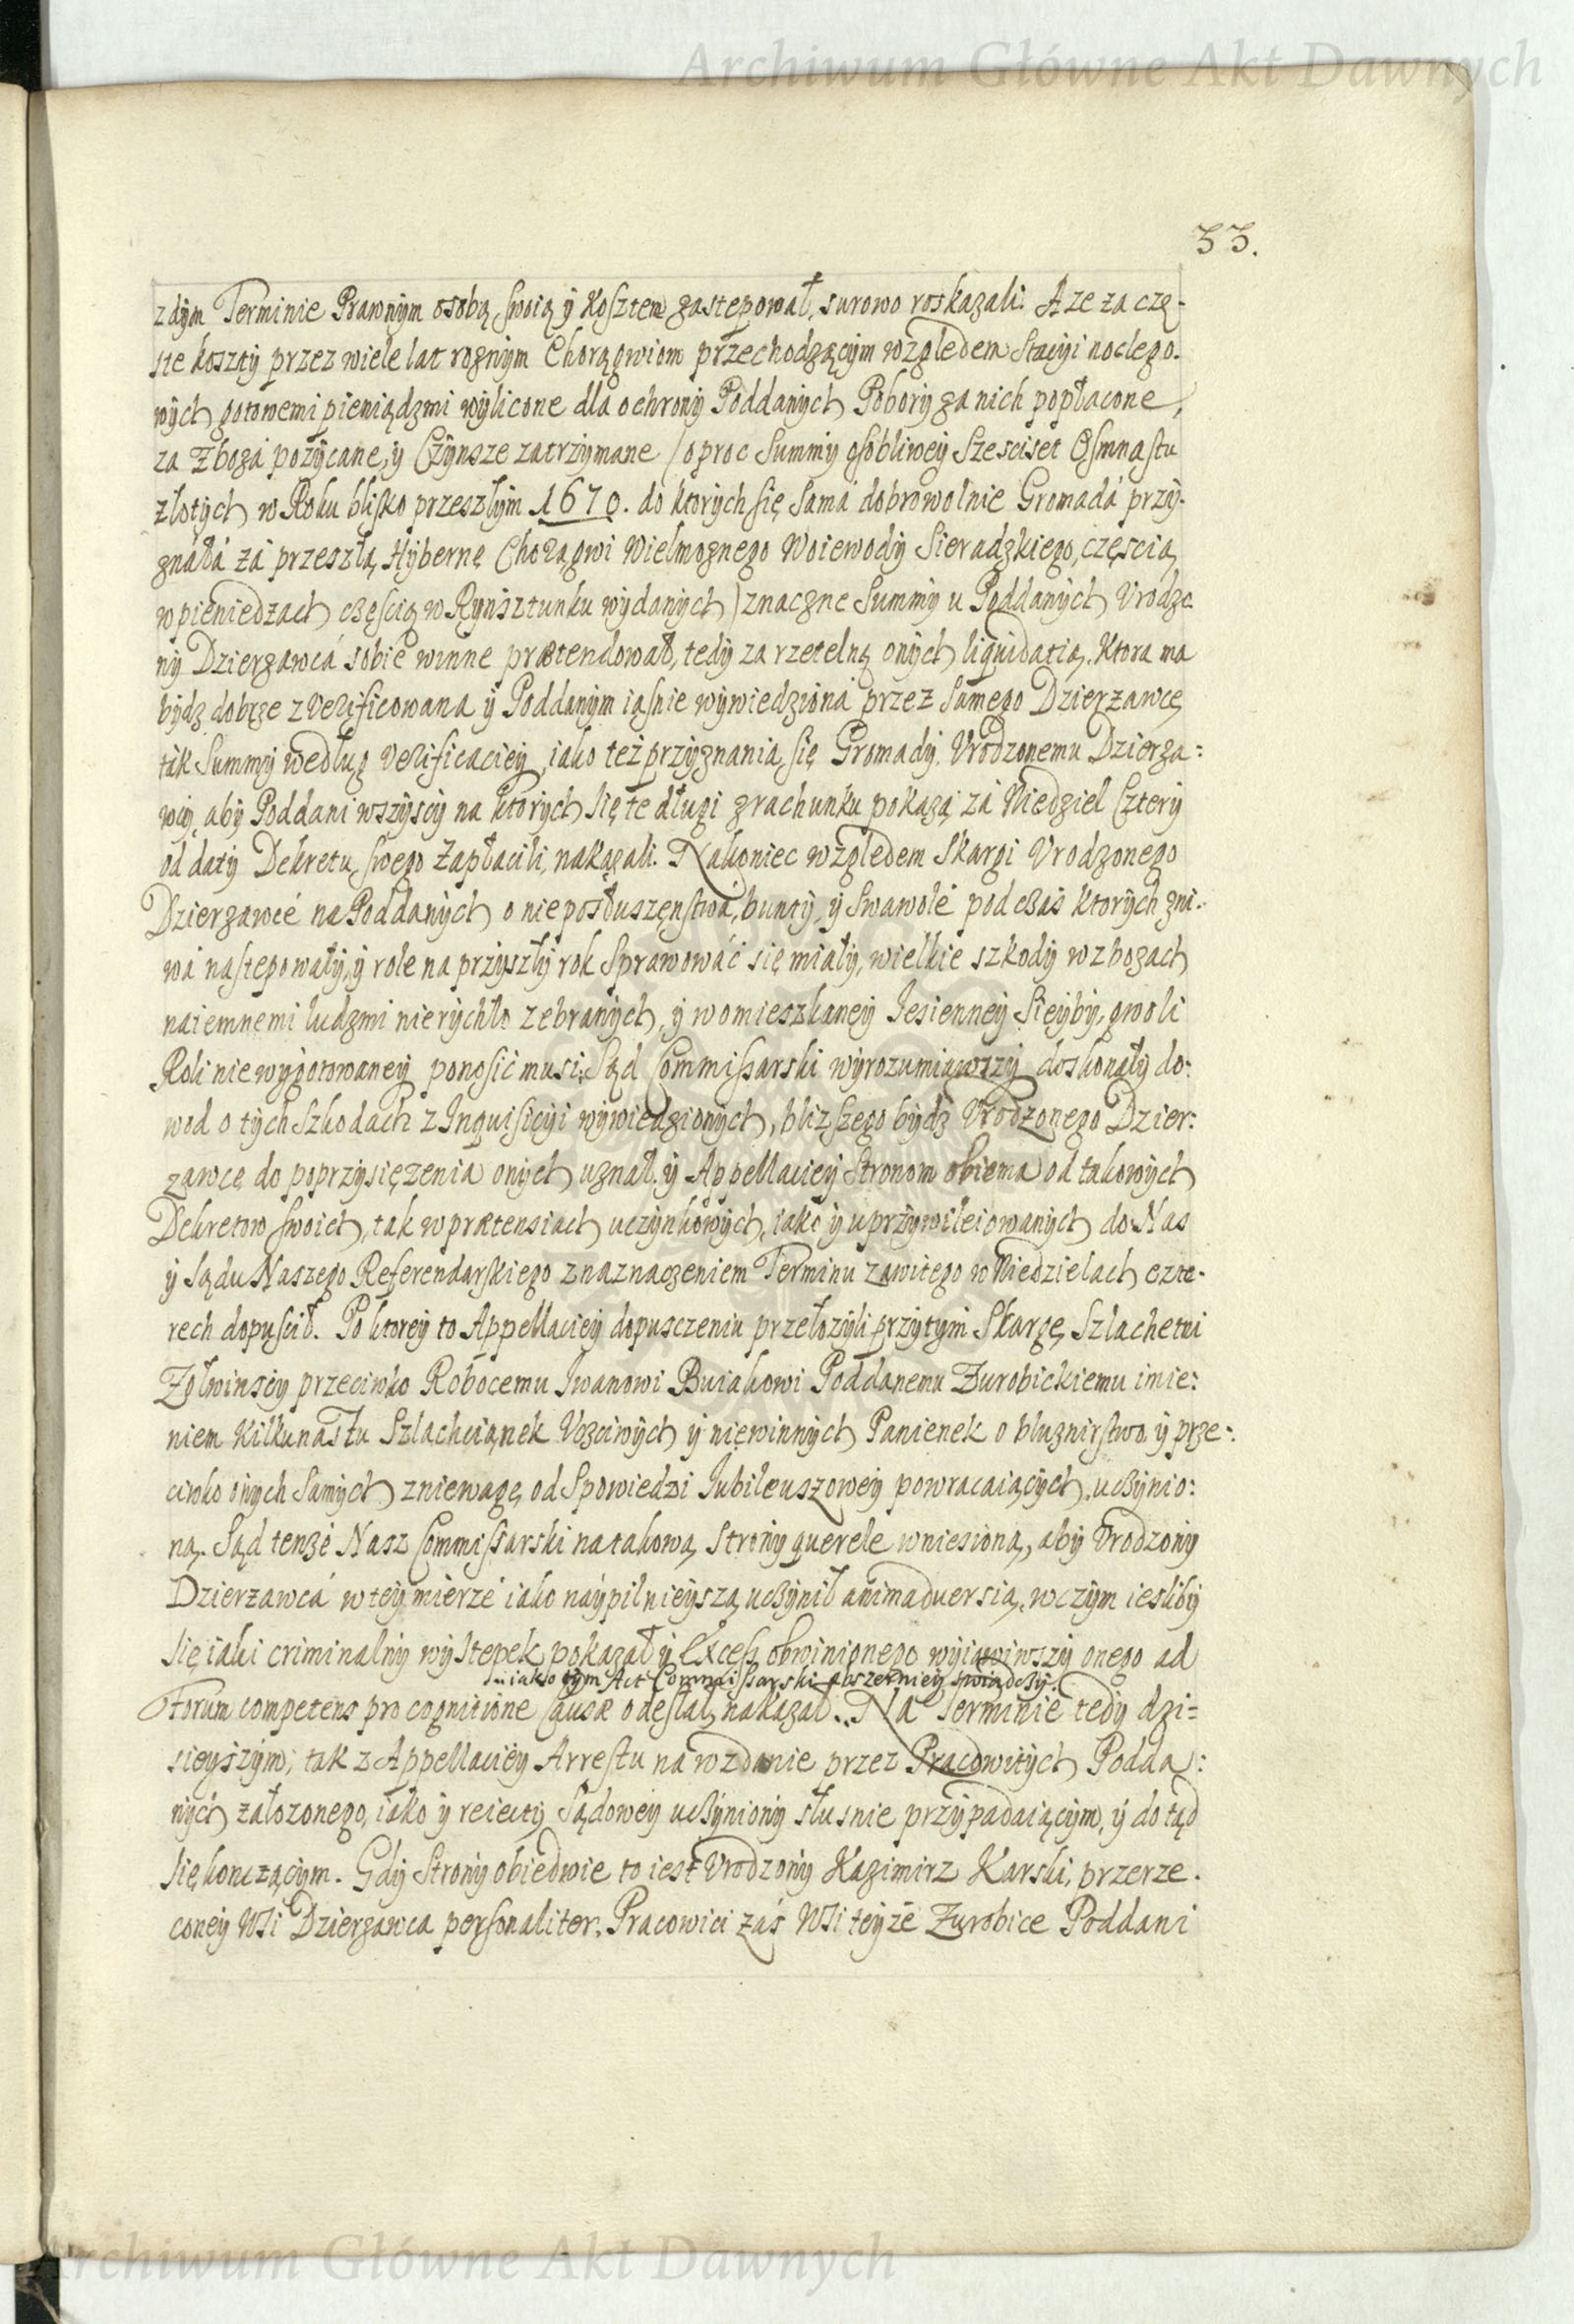 Archiwum Główne Akt Dawnych
33.
zdym Terminie Prawnym osobą swoią y kosztem zastępował, surowo roskazali. A ze za czę-
ste koszty przez wiele lat roznym Chorągwiom przechodzącym względem Stacyi noclego-
wych gotowemi pieniądzmi wyliczone dla ochrony Poddanych Pobory za nich popłacone,
za Zboża pożycane, y Czynsze zatrzymane /oproc Summy osobliwey Szesciset Osmnastu
złotych w Roku blisko przeszłym 1670. do ktorych się Sama dobrowolnie Gromadá przy-
znáłá zá przeszłą Hybernę Chorągwi Wielmoznego Woiewody Sieradzkiego, częscią
w pieniedzach częscią w Rynsztunku wydanych) znaczne Summy u Poddanych Vrodze
ny Dzierzawcá sobie winne prætendował, tedy za rzetelną onych liquidatią. Ktora ma
bydz dobrze zverificowana y Poddanym iasnie wywiedziona przez Samego Dzierzawcę
tak Summy według verificaciey, iako też przyznania się Gromady. Vrodzonemu Dzierza=
wcy, aby Poddani wszyscy na ktorych się te długi z rachunku pokażą zá Niedziel Cztery
od daty Dekretu swego Zapłacili, nakazali. Nakoniec względem Skargi Vrodzonego
Dzierzawce na Poddanych o nieposłuszęnstwá, bunty, y Swawole podczas ktorych zni-
wá nastepowały, y role na przyszły rok Sprawować się miały, wielkie szkody w zbozach
naiemnemi ludzmi nierychło zebranych, y womieszkaney Iesienney Sieyby, gwoli
Roli niewygotowaney ponosić musi. Sąd Commissarski wyrozumiawszy doskonały do:
wod o tych Szkodach z Inquisicyi wywiedzionych, blizszego bydz Vrodzonego Dzier:
zawcę do poprzysięzenia onych uznał. y Appellaciey Stronom obiema od takowych
Dekretow swoich, tak w prætensiach uczynkowych, iako y uprzywileiowanych do Nas
y Sądu Naszego Referendarskiego z naznaczeniem Terminu zawitego w Niedzielach czte-
rech dopuscił. Po ktorey to Appellaciey dopusczeniu przełozyli przytym Skargę Szlachetni
Zołwinscy przeciwko Robocemu Iwanowi Buiakowi Poddanemu Zurobickiemu imie:
niem kilkunastu Szlachcianek Vczciwych y niewinnych Panienek o bluznirstwo y prze-
ciwko onych Samych zniewagę od Spowiedzi Iubileuszowey powracaiących uczynio:
ną. Sąd tenże Nasz Commissarski na takową Strony querele wniesioną, aby Vrodzony
Dzierzawcá w tey mierze iako naypilnieyszą uczynił animaduersią, w czym iesliby
się iaki criminalny wystepek pokazał y Excess obwinionego wyiawiwszy onego ad
iako o tym Act Commissarski obszerniey swiadczy.
Forum competens pro cognitione Causæ odesłał, nakazał. Na Terminie tedy dzi=
sieyszym, tak z Appellaciey Arrestu na wzdanie przez Pracowitych Podda:
nych załozonego, iako y reiecty Sądowey uczyniony słusnie przypadaiącym, y dotąd
się kończącym. Gdy Strony obiedwie to iest Vrodzony Kazimirz Karski, przerze-
czoney Wsi Dzierzawca personaliter. Pracowici zaś Wsi teyże Zurobice Poddani
Archiwum Główne Akt Dawnych